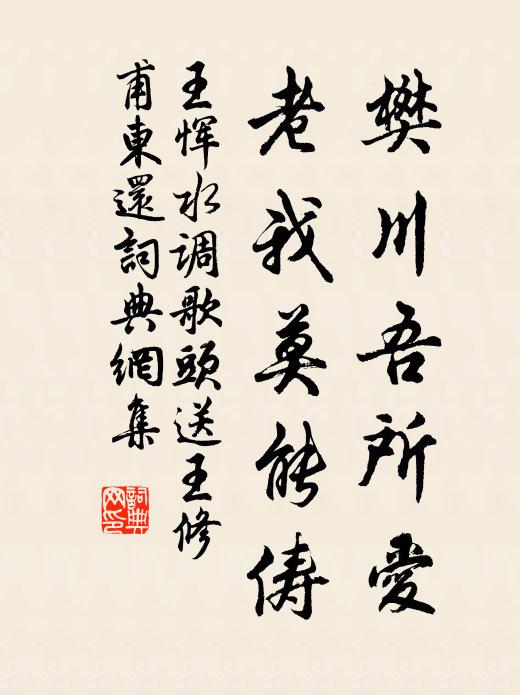 樊川吾所愛
老我莫能儔
王惲水調歌頭送王修
甫東還詞典網集
詞典
网印